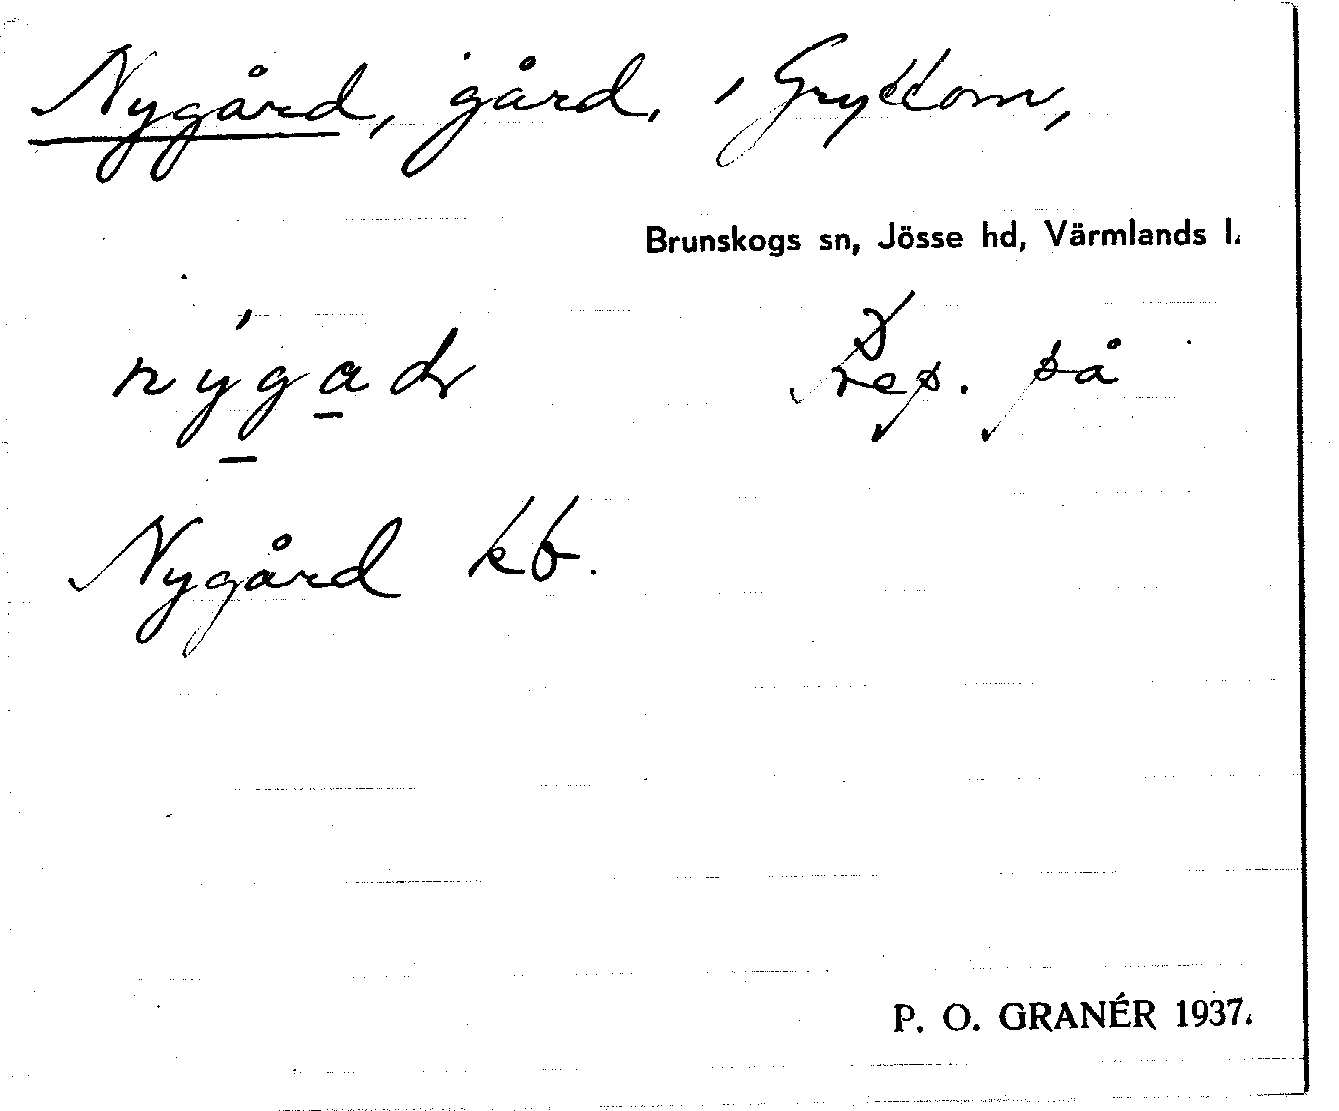 Nygård, gård, i Gryttom,
Brunskogs sn, Jösse hd, Värmlands l.
nýgadr Prep. på
Nygård kb.
P. O. GRANÉR 1937.